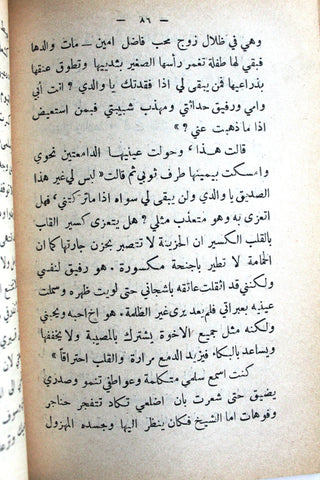 — ٨٦ —
وهي في ظلال زوج محب فاضل امين — مات والدها
فبقي لها طفلة تغمر رأسها الصغير بثدييها وتطوق عنقها
بذراعيها فمن يبقى لي اذا فقدتك يا والدي ؟ انت أبي
وامي ورفيق حداثتي ومهذب شبيبتي فبمن استعيض
اذا ما ذهبت عني ؟ »
قالت هذا وحولت عينيها الدامعتين نحوي
وامسكت بيمينها طرف ثوبي ثم قالت « ليس لي غير هذا
الصديق يا والدي ولن يبقى لي سواه اذا ما تركتني ، فهل
اتعزى به وهو متعذب مثلي ؟ هل يتعزى كسير القلب
بالقلب الكسير ان الحزينة لا تتصبر بحزن جارتها كما ان
الحمامة لا تطير باجنحة مكسورة . هو رفيق لنفسي
ولكنني قد اثقلت عاتقه باشجاني حتى لويت ظهره وسملت
عينيه بعبراتي فلم يعد يرى غير الظلمة . هو اخ احبه ويحبني
ولكنه مثل جميع الاخوة يشترك بالمصيبة ولا يخففها
ويساعد بالبكاء فيزيد الدمع مرارة والقلب احتراقاً »
كنت اسمع سلمى متكلمة وعواطفي تنمو وصدري
يضيق حتى شعرت بان اضلعي تكاد تتفجر حناجر
وفوهات اما الشيخ فكان ينظر اليها وجسده المهزول